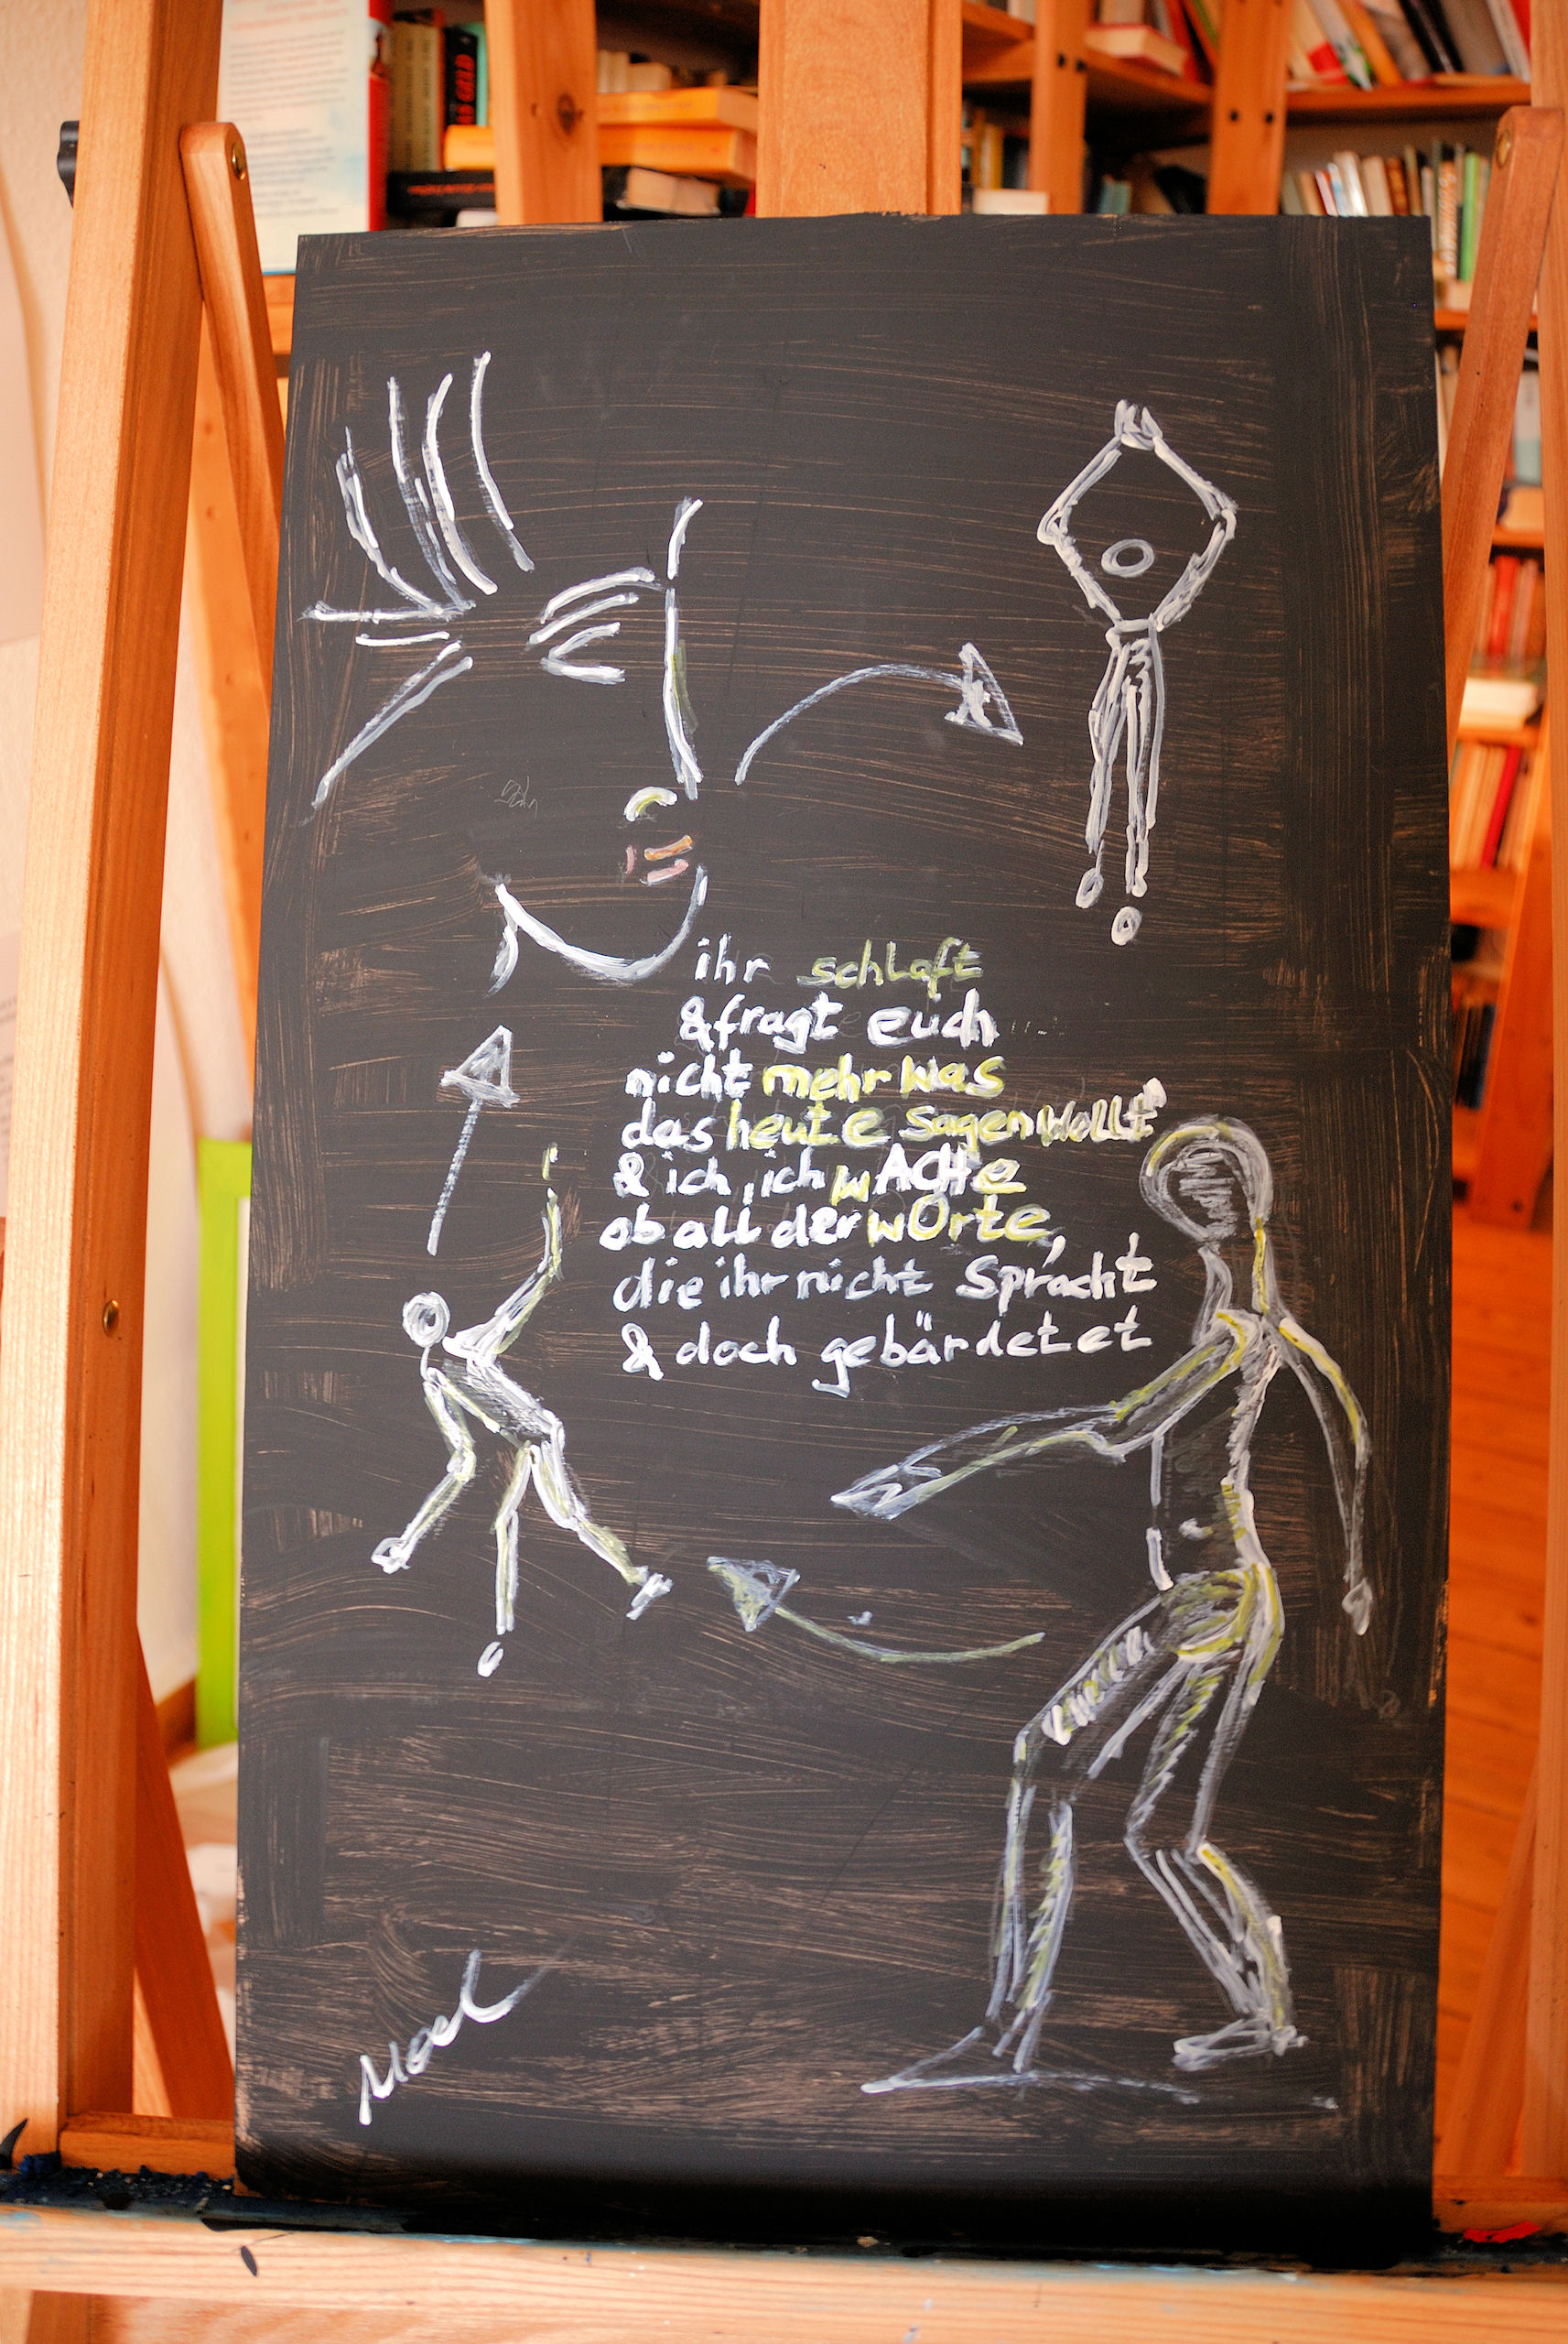 ihr schlaft
& fragt euch
nicht mehr was
das heute sagen wollt
& ich, ich wACHe
ob all der wOrte,
die ihr nicht Spracht
& doch gebärdetet